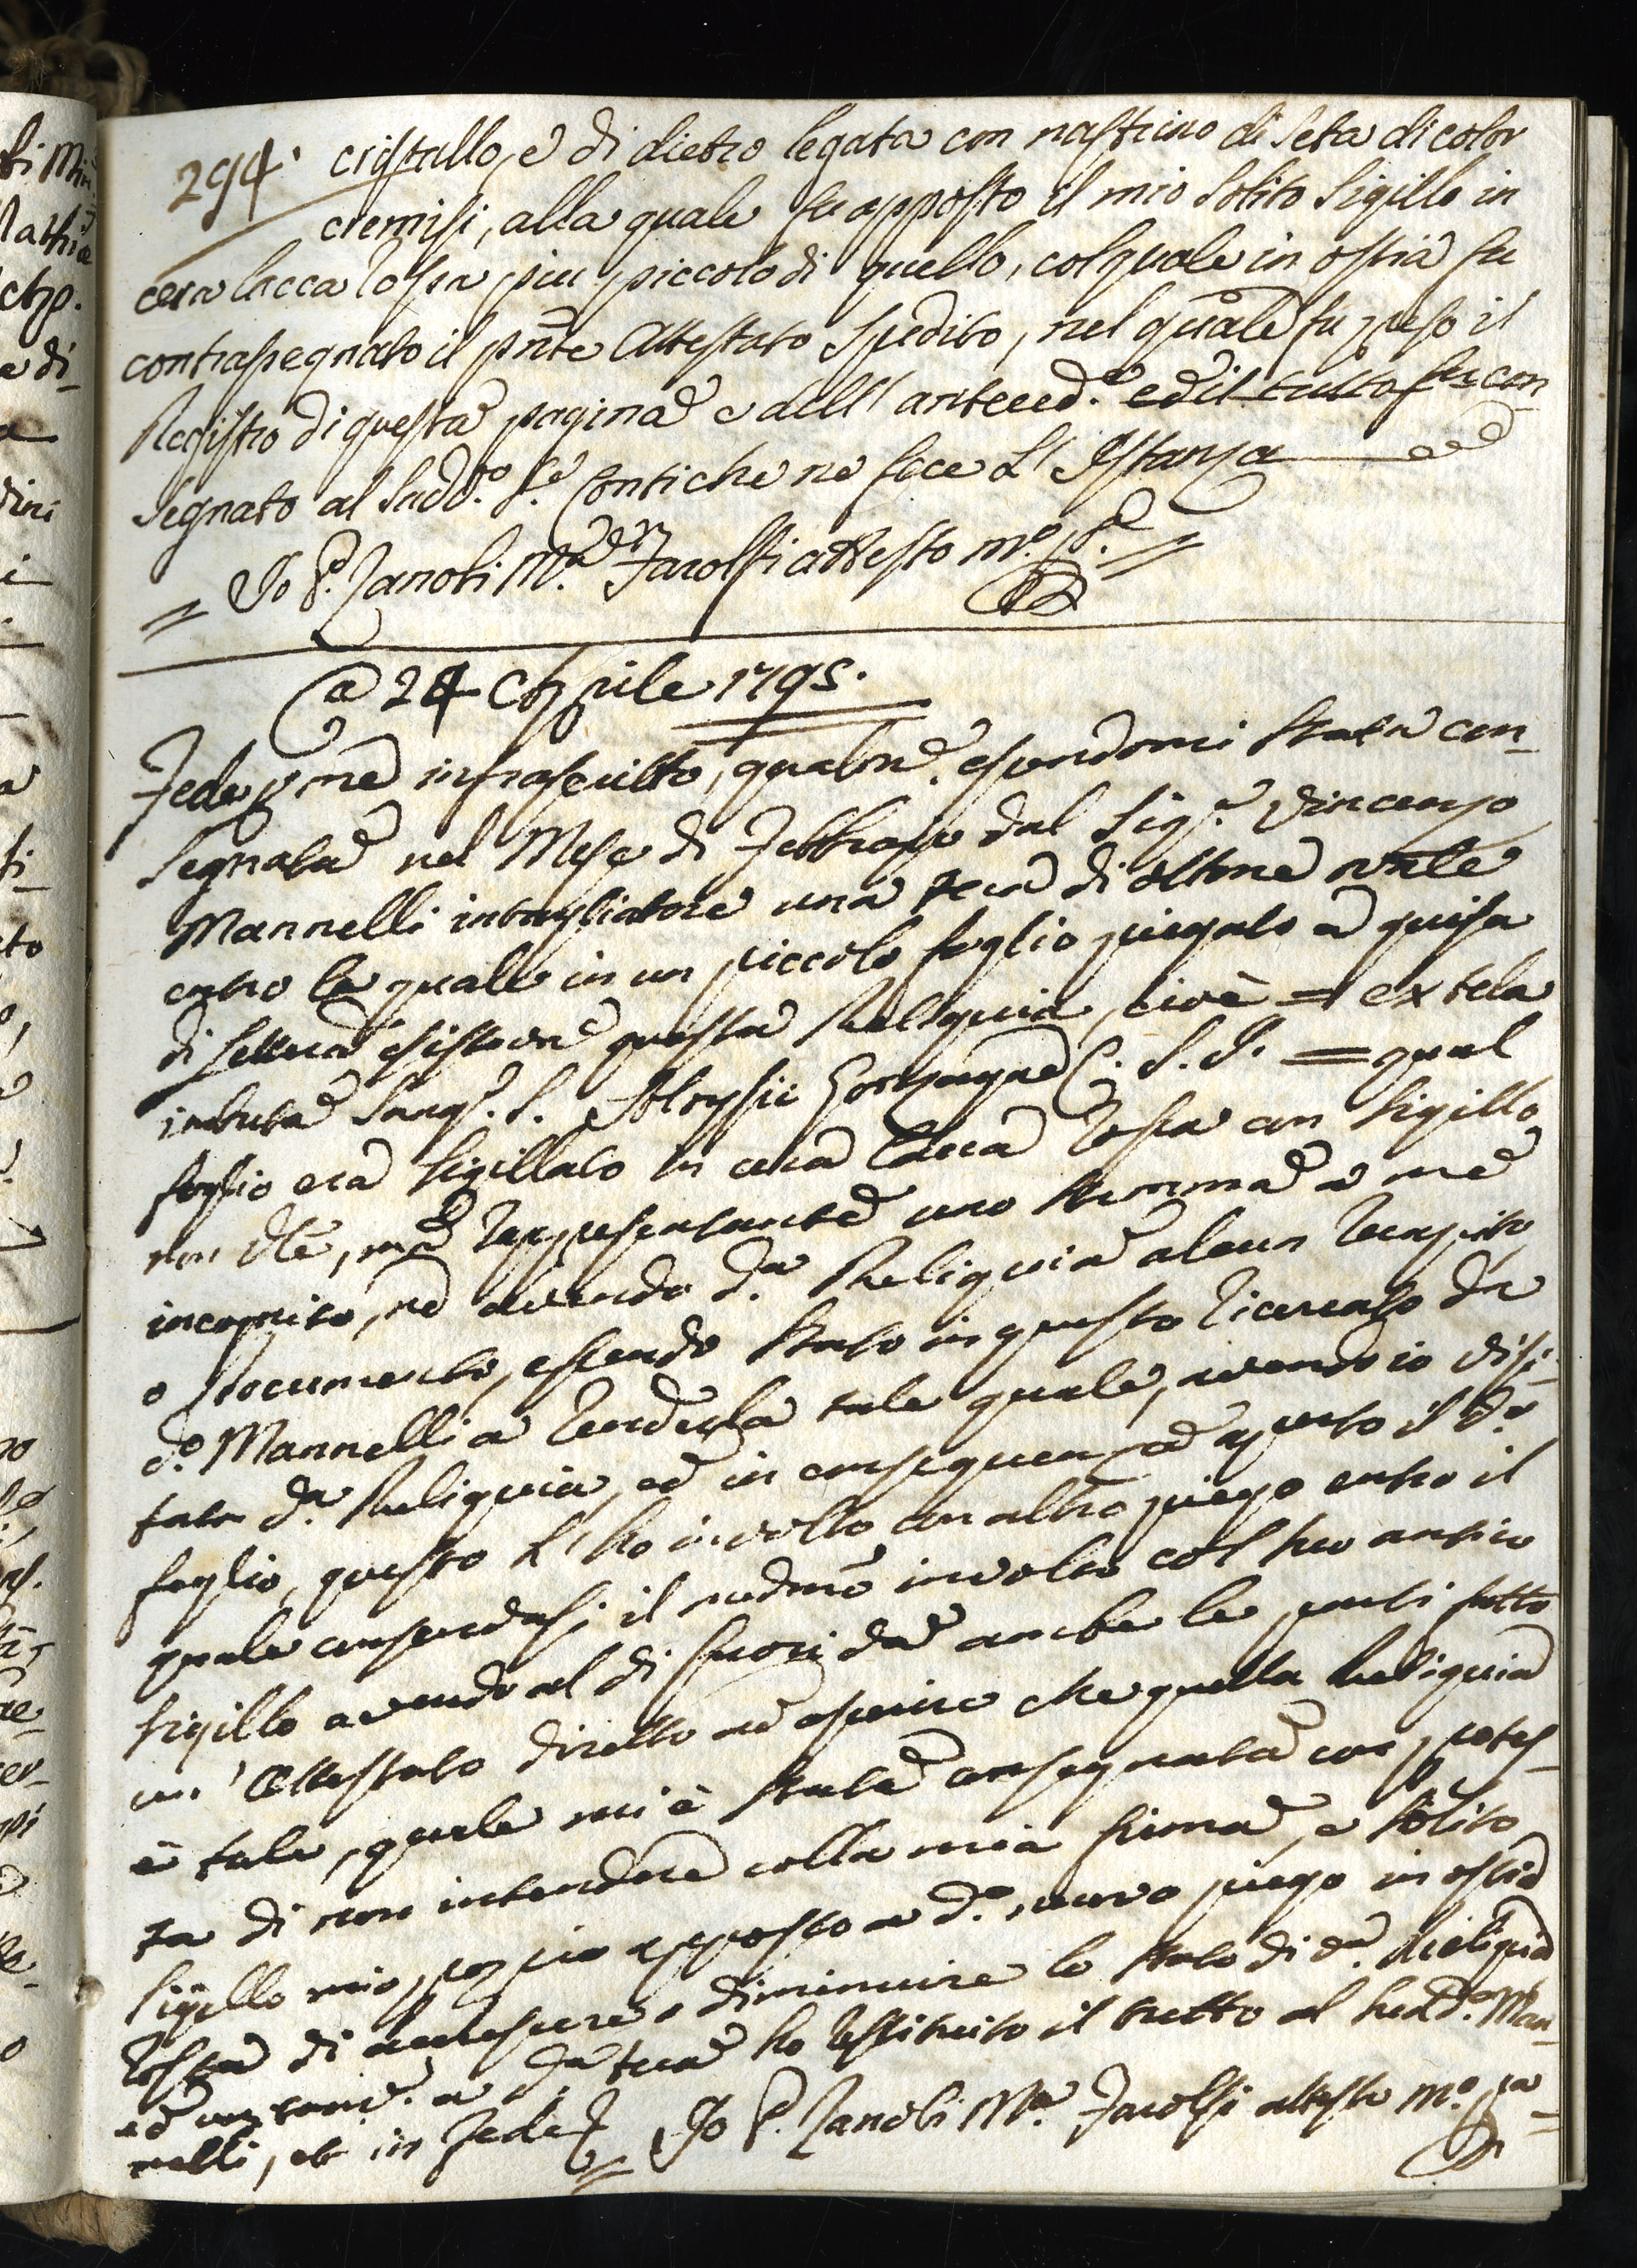 294. cristallo, e di dietro legata con nastrino di Seta di color
cremisi, alla quale fu apposto il mio Solito Sigillo in
cera lacca rossa piu piccolo di quello, col quale in ostia fu
contrassegnato il pnte Attestato Spedito, nel quale fu preso il
Registro di questa pagina e dell'anteced.e ed il tutto fu con
segnato al Sudd.o Sr. Conti che ne fece L'Istanza
= Io P. Zanobi Ma. Jacolfi attesto mo. pa. =
A 24 Aprile 1795.
Fede p me infrascritto, qualm.e essendomi stata con-
segnata nel Mese di Febbrajo dal Sig.r Vincenzo
Mannelli intagliatore una teca di ottone
entro la quale in un piccolo foglio piegato a guisa
di lettera esisteva questa Reliquia, cioè = ex tela
imbuta Sang. S. Aloysii Gonzagae C. S. J. = qual
foglio era Sigillato in cera lacca rossa con Sigillo
non Vle, ma rappresentante uno stemma a me
incognito, ne avendo d.a Reliquia alcun recapito,
o Documento, essendo stato in questo ricercato da
d.o Mannelli a renderla tale quale, avendo io visi-
tata d.a Reliquia, ed in conseguenza aperto il d.o
foglio, questo L'ho involto con altro piego entro il
quale conservasi il medmo involto col suo antico
Sigillo avendo al di fuori da ambe le parti fatto
un' Attestato diretto ad asserire che quella Reliquia
è tale, quale mi è stata consegnata con protes-
ta di non intendere colla mia firma, e solito
Sigillo mio proprio apposto a d.o nuovo piego in ostia
rossa di accrescere o diminuire lo stato di d.a Reliquia
ed a d.a teca ho restituito il tutto al Sudd.o Man-
nelli, et in Fede = Io P. Zanobi Ma. Jacolfi attesto mo. pa. =